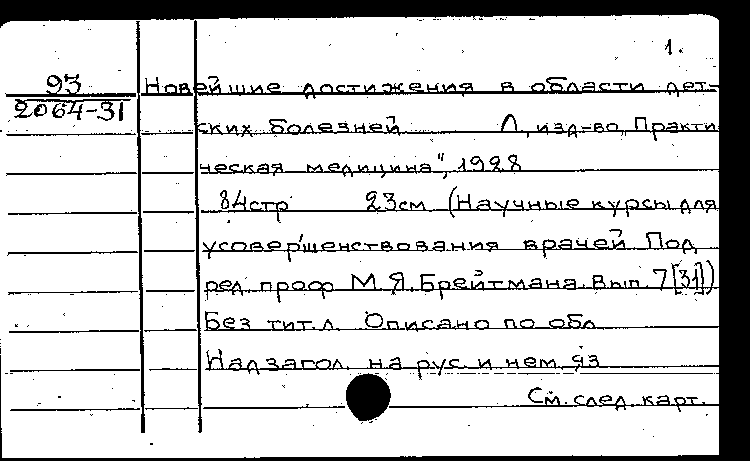 1.
93
2064-31
Новейшие достижения в области дет-
ских болезней Л, изд-во „Практи
ческая медицина", 1928
84стр 23см (Научные курсы для
усовершенствования врачей Под
ред. проф М. Я. Брейтмана. Вып. 7[31])
Без тит.л. Описано по обл
Надзагол. на рус и нем яз
См. след. карт.